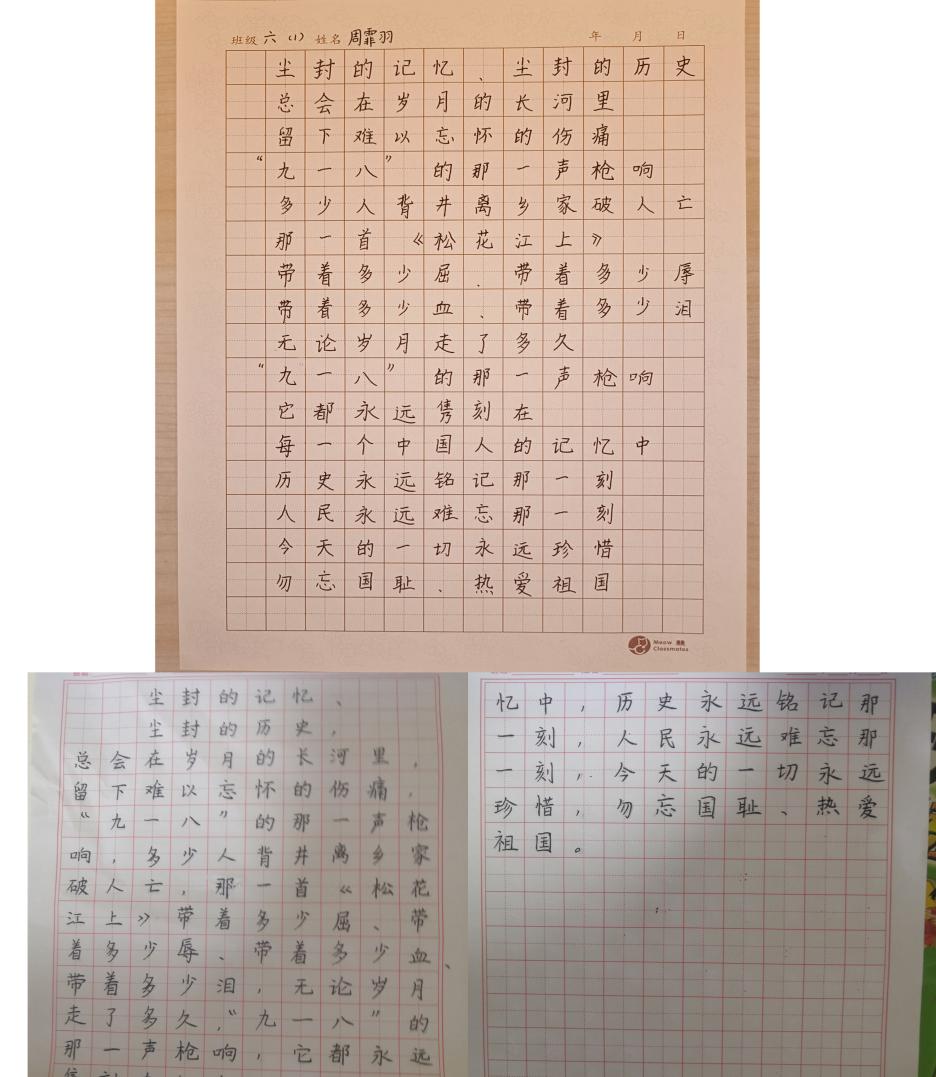 班级 六（1） 姓名 周霏羽 年 月 日
尘封的记忆、尘封的历史
总会在岁月的长河里
留下难以忘怀的伤痛
“九一八”的那一声枪响
多少人背井离乡家破人亡
那一首《松花江上》
带着多少屈、带着多少辱
带着多少血、带着多少泪
无论岁月走了多久
“九一八”的那一声枪响
它都永远隽刻在
每一个中国人的记忆中
历史永远铭记那一刻
人民永远难忘那一刻
今天的一切永远珍惜
勿忘国耻、热爱祖国
Meow
Classmates
尘封的记忆、
尘封的历史，
总会在岁月的长河里，
留下难以忘怀的伤痛，
“九一八”的那一声枪
响，多少人背井离乡家
破人亡，那一首《松花
江上》带着多少屈、带
着多少辱、带着多少血、
带着多少泪，无论岁月
走了多久，“九一八”的
那一声枪响，它都永远
忆中，历史永远铭记那
一刻，人民永远难忘那
一刻，今天的一切永远
珍惜，勿忘国耻、热爱
祖国。